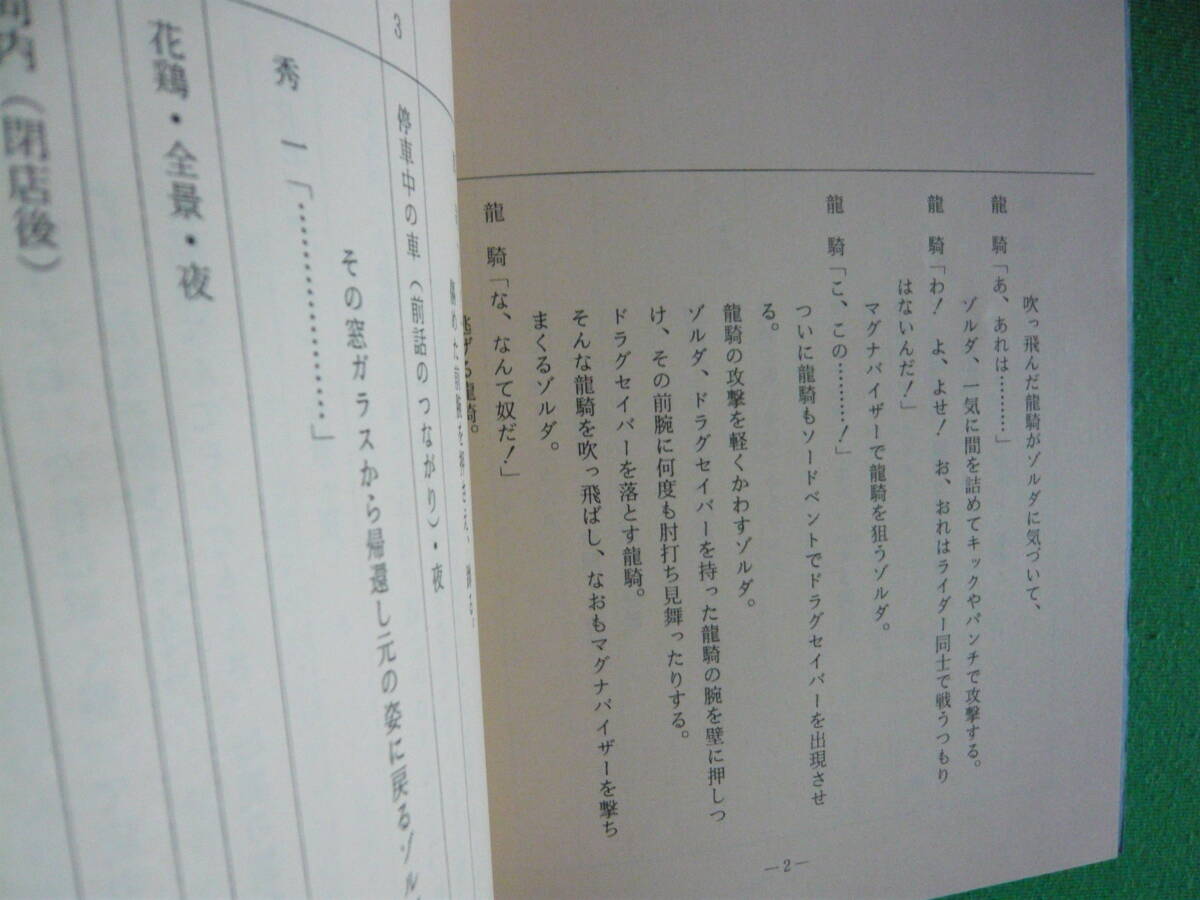 吹っ飛んだ龍騎がゾルダに気づいて、
龍　騎「あ、あれは…………」
ゾルダ、一気に間を詰めてキックやパンチで攻撃する。
龍　騎「わ！　よ、よせ！　お、おれはライダー同士で戦うつもり
はないんだ！」
マグナバイザーで龍騎を狙うゾルダ。
龍　騎「こ、この………！」
ついに龍騎もソードベントでドラグセイバーを出現させ
る。
龍騎の攻撃を軽くかわすゾルダ。
ゾルダ、ドラグセイバーを持った龍騎の腕を壁に押しつ
け、その前腕に何度も肘打ち見舞ったりする。
ドラグセイバーを落とす龍騎。
そんな龍騎を吹っ飛ばし、なおもマグナバイザーを撃ち
まくるゾルダ。
龍　騎「な、なんて奴だ！」
逃げる龍騎。
―2―
3
停車中の車（前話のつながり）・夜
その窓ガラスから帰還し元の姿に戻るゾル
秀　一「………………」
花鶏・全景・夜
内（閉店後）